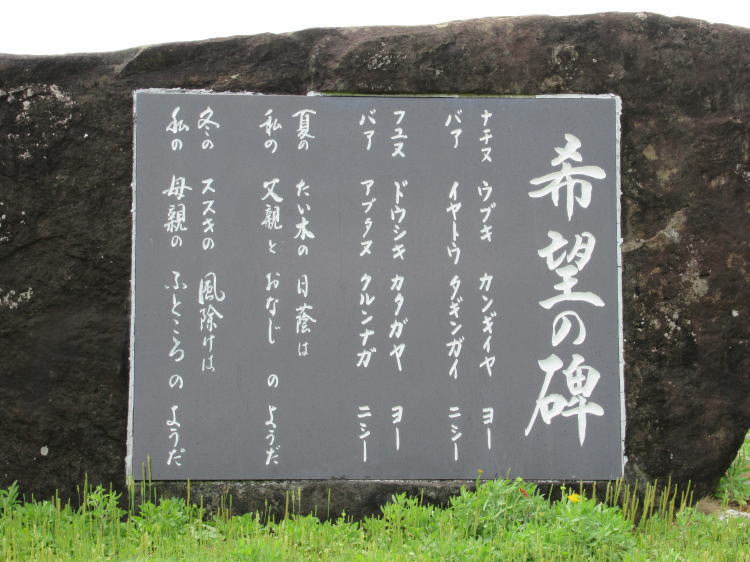 希望の碑
ナチヌ ウブキ カンギイヤ ヨー
バア イヤトウ タギンガイ ニシー
フユヌ ドウシキ カタガヤ ヨー
バア アブタヌ クルンナガ ニシー
夏の たい木の 日蔭は
私の 父親と おなじ の ようだ
冬の ススキの 風除けは
私の 母親の ふところ の ようだ